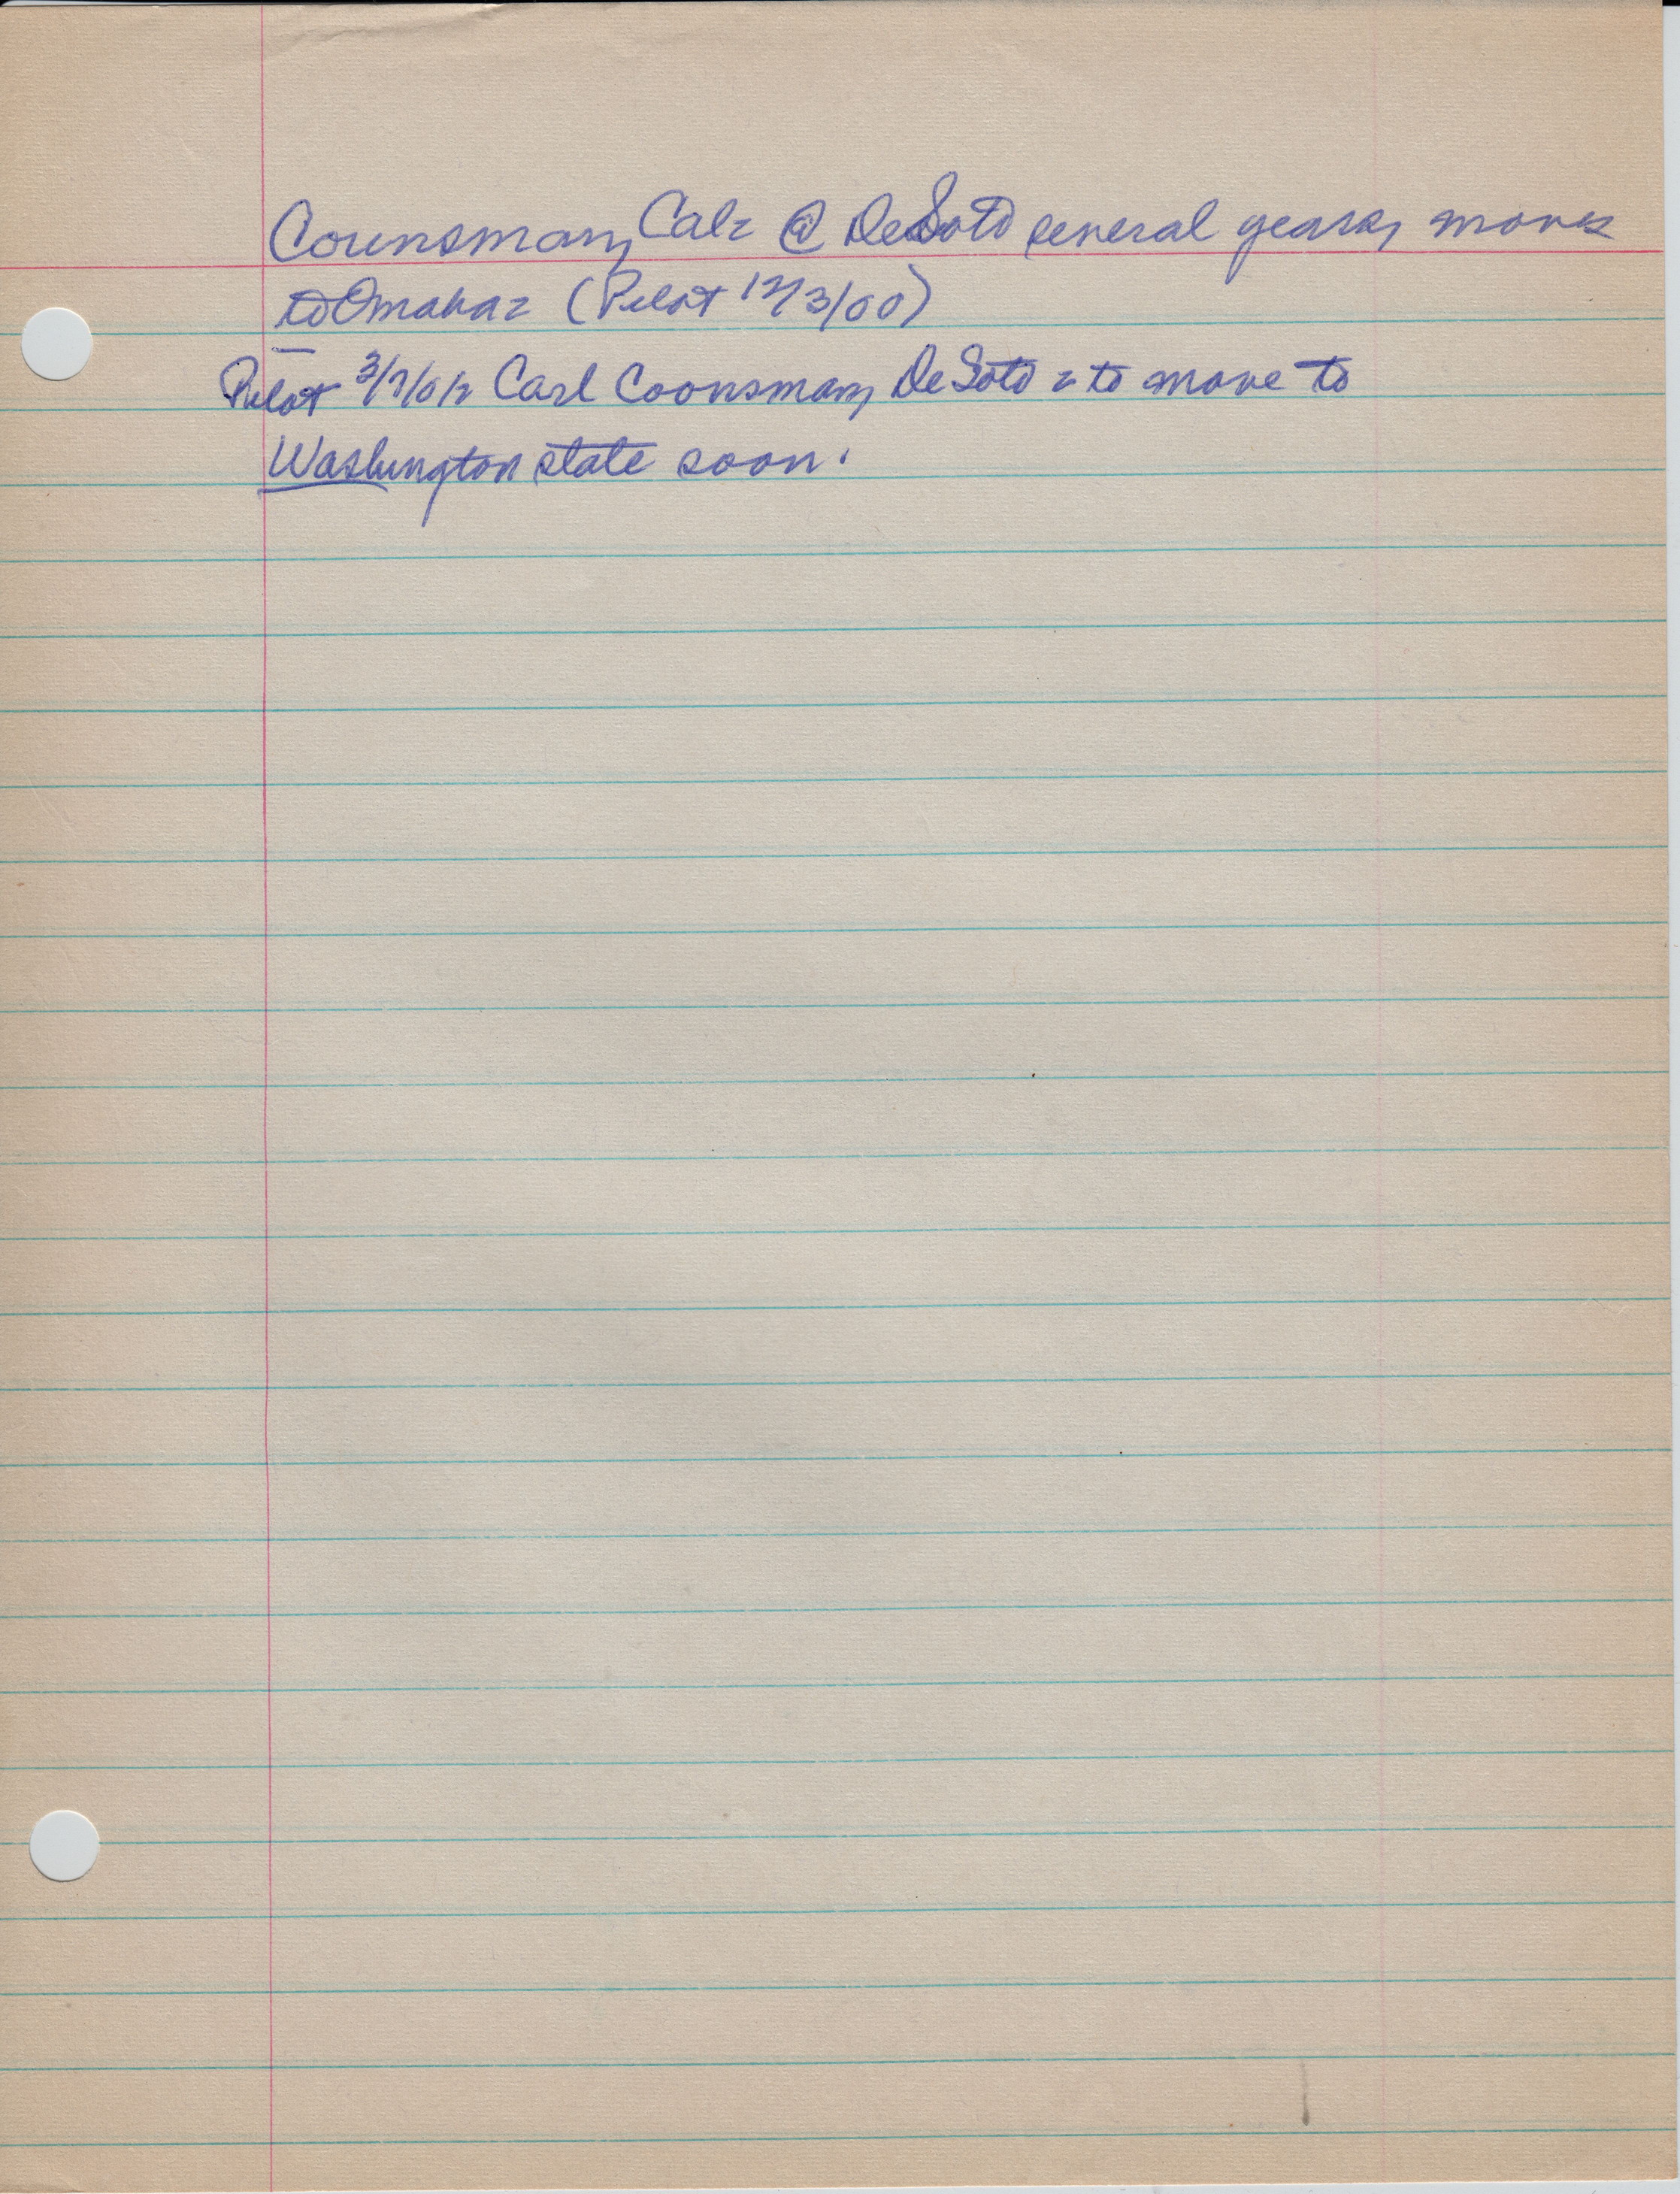 Counsman, Cal = @ DeSoto several years, moves
to Omaha = (Pilot 12/3/00)
Pilot 3/7/01 = Carl Coonsman, DeSoto = to move to
Washington state soon.